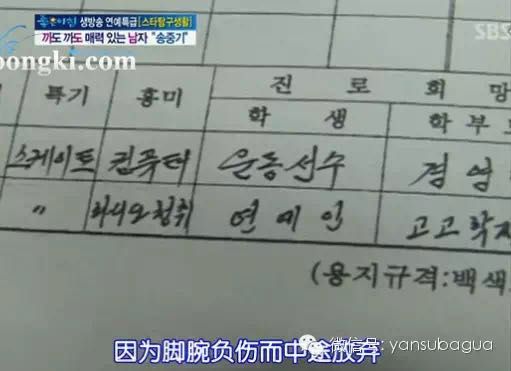 좋은아침 생방송 연예특급[스타탐구생활]
까도 까도 매력 있는 남자 "송중기"
SBS
oongki.com
특기 흥미 진로희망
학생 학부
스케이트 컴퓨터 운동선수 경영
〃 라디오청취 연예인 고고학자
(용지규격:백색
微信号: yansubagua
因为脚腕负伤而中途放弃